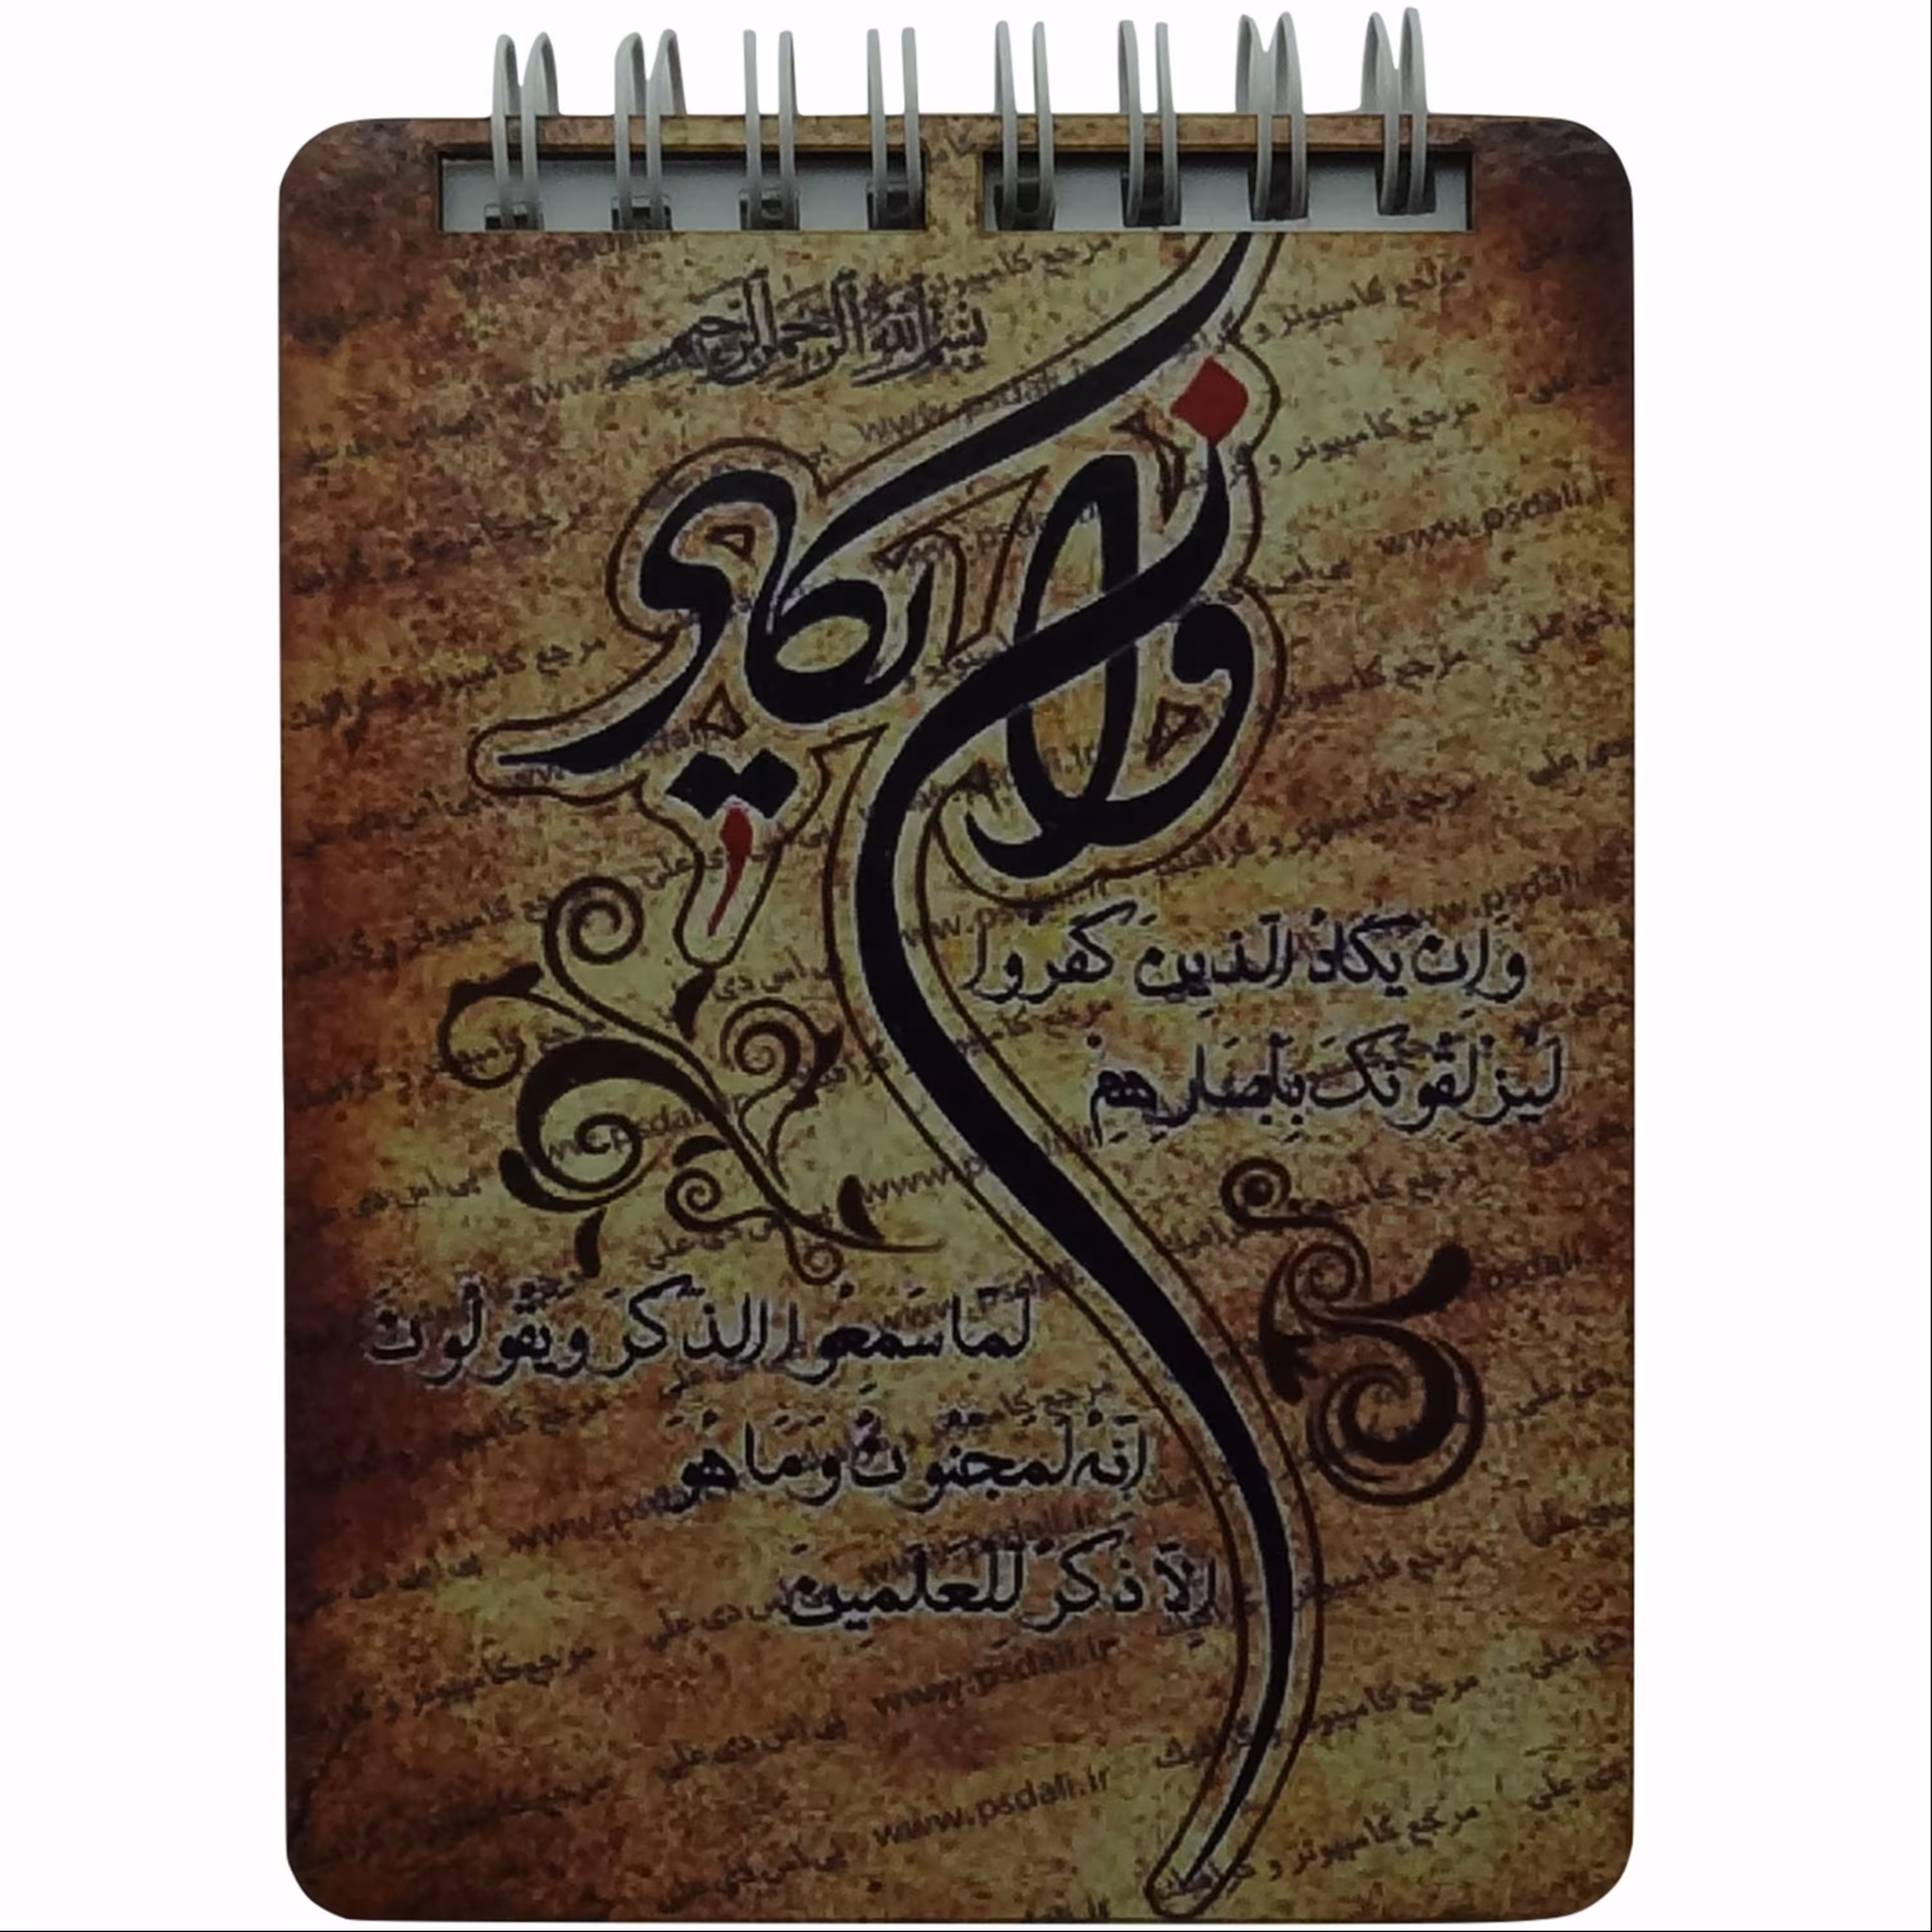 بسم الله الرحمن الرحیم
وان یکاد
وَاِن یَکَادُ الَّذِینَ کَفَرُوا
لَیُزلِقُونَکَ بِاَبصَارِهِم
لَمّا سَمِعُوا الذِّکرَ وَیَقُولُونَ
اِنَّهُ لَمَجنُونٌ وَمَا هُوَ
اِلّا ذِکرٌ لِلعَلَمِینَ
www.psdali.ir
پی اس دی علی
مرجع کامپیوتر و گرافیک